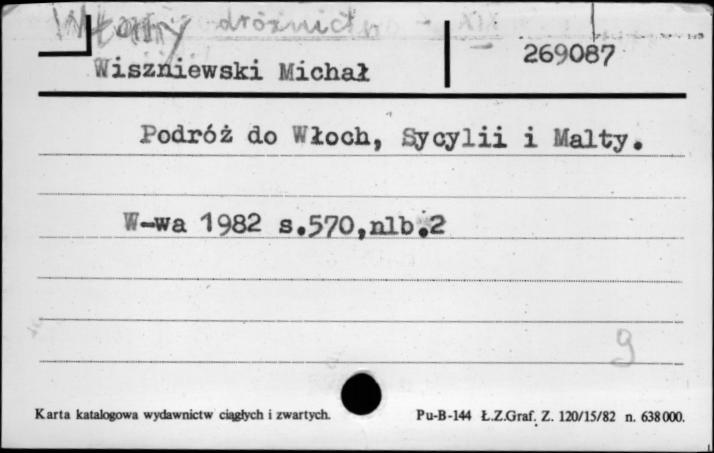 XIX
269087
Wiszniewski Michał
Podróż do Włoch, Sycylii i Malty.
W-wa 1982 s.570,nlb.2
9
Karta katalogowa wydawnictw ciągłych i zwartych. Pu-B-144 Ł.Z.Graf. Z. 120/15/82 n. 638000.